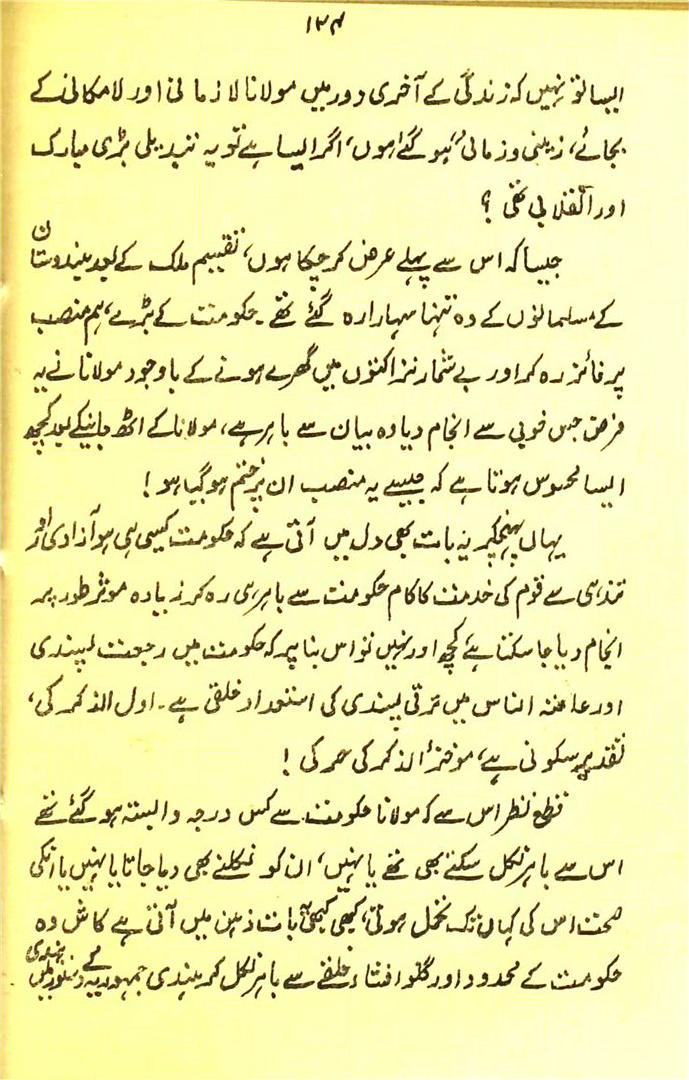 ۱۳۴
ایسا تو نہیں کہ زندگی کے آخری دور میں مولانا لا زمانی اور لامکانی کے
بجائے، زمینی و زمانی، ہو گئے ہوں، اگر ایسا ہے تو یہ تبدیلی بڑی مبارک
اور انقلابی تھی ؟
جیسا کہ اس سے پہلے عرض کر چکا ہوں، تقسیم ملک کے بعد ہندوستان
کے مسلمانوں کے وہ تنہا سہارا رہ گئے تھے۔ حکومت کے بڑے، ہم منصب
پر فائز رہ کر اور بے شمار نزاکتوں میں گھرے ہونے کے باوجود مولانا نے یہ
فرض جس خوبی سے انجام دیا وہ بیان سے باہر ہے، مولانا کے اٹھ جانیکے بعد کچھ
ایسا محسوس ہوتا ہے کہ جیسے یہ منصب ان پر ختم ہو گیا ہو !
یہاں پہنچکر یہ بات بھی دل میں آتی ہے کہ حکومت کیسی ہی ہو آزادی اور
تندہی سے قوم کی خدمت کا کام حکومت سے باہر ہی رہ کر زیادہ موثر طور پر
انجام دیا جا سکتا ہے کچھ اور نہیں تو اس بنا پر کہ حکومت میں رجعت پسندی
اور عامتہ الناس میں ترقی پسندی کی استعداد خلقی ہے۔ اول الذکر کی،
تقدیر سکونی ہے، موخر الذکر کی حرکی !
قطع نظر اس سے کہ مولانا حکومت سے کس درجہ وابستہ ہو گئے تھے
اس سے باہر نکل سکتے بھی تھے یا نہیں، ان کو نکلنے بھی دیا جاتا یا نہیں یا انکی
صحت اس کی کہاں تک متحمل ہوتی، کبھی کبھی یہ بات ذہن میں آتی ہے کاش وہ
حکومت کے محدود اور گلو افشاء حلقے سے باہر نکل کر ہندی جمہوریہ کے دستور میں